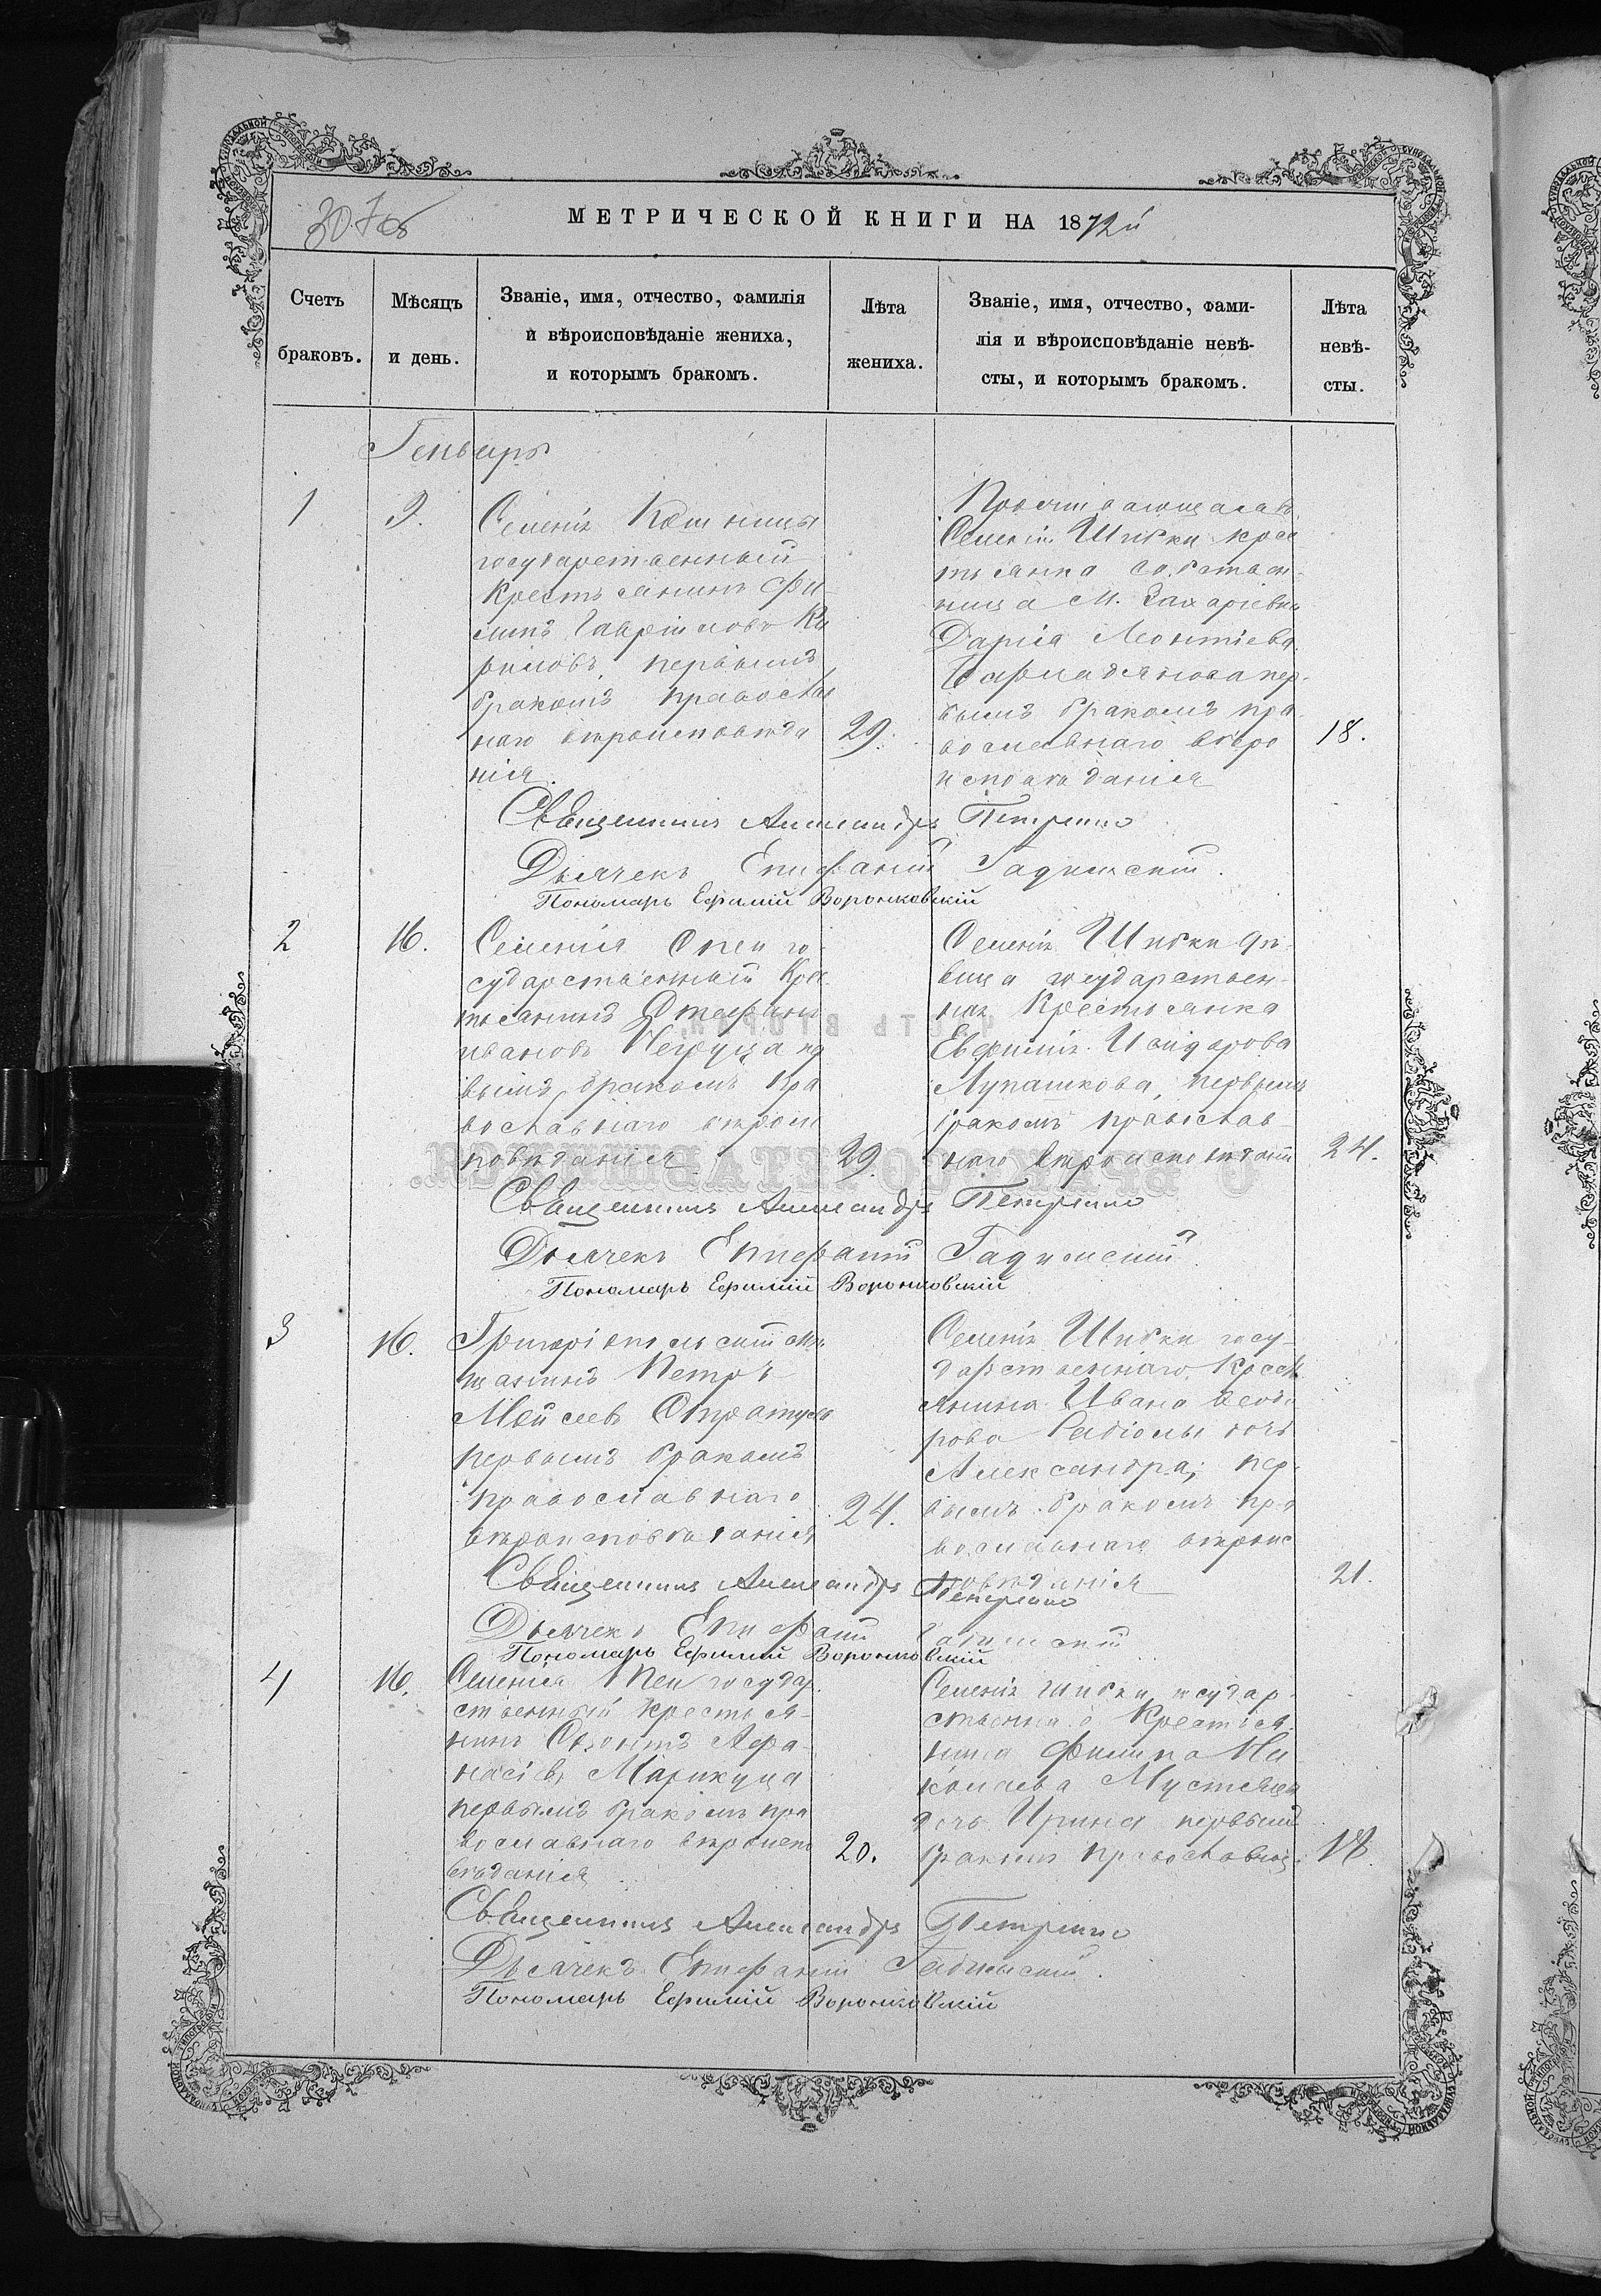 МЕТРИЧЕСКОЙ КНИГИ НА 1872й
Счетъ браковъ.
Мѣсяцъ и день.
Званіе, имя, отчество, фамилія
и вѣроисповѣданіе жениха,
и которымъ бракомъ.
Лѣта жениха.
Званіе, имя, отчество, фами-
лія и вѣроисповѣданіе невѣ-
сты, и которымъ бракомъ.
Лѣта
невѣ-
сты.
Генварь
1
9.
Селенія
государственный
Крестьянинъ Фи
липъ Гавріиловъ Ки
риловъ, первымъ
бракомъ православ
наго вѣроисповѣда
нія.
29.
Проживающая въ
Селеніи Шипки крес
тьянка
М. Захаріевки
Дарія Леонтіева
пер-
вымъ бракомъ пра
вославнаго вѣро
исповѣданія
18.
Священникъ Александръ Петренко
Дьячекъ Епифаній
Пономарь Ефимій Воронковскій
2
16.
Селенія Спеи го-
сударственный Крес
тьянинъ
Ивановъ пер
вымъ бракомъ пра
вославнаго вѣроис
повѣданія
29.
Селенія Шипки дѣ-
вица государствен-
ная Крестьянка
Евфимія Исидорова
Лупашкова, первымъ
бракомъ православ
наго вѣроисповѣданія
24.
Священникъ Александръ Петренко
Дьячекъ Епифаній
Пономарь Ефимій Воронковскій
3
16.
Григоріопольскій мѣ
щанинъ Петръ
первымъ бракомъ
православнаго
вѣроисповѣданія
24.
Селенія Шипки госу-
дарственнаго Кресть
янина Ивана Ѳеодо
рова дочь
Александра, пер-
вымъ бракомъ пра
вославнаго вѣроис
повѣданія
21.
Священникъ Александръ Петренко
Дьячекъ Епифаній
Пономарь Ефимій Воронковскій
4
16.
Селенія Спеи государ
ственный крестья-
нинъ Аѳа-
насіевъ
первымъ бракомъ пра
вославнаго вѣроиспо
вѣданія
20.
Селенія Шипки государ
ственнаго Крестья
нина Филипа Ни
колаева
дочь Ирина первымъ
бракомъ православнаго
18.
Священникъ Александръ Петренко
Дьячекъ Епифаній
Пономарь Ефимій Воронковскій